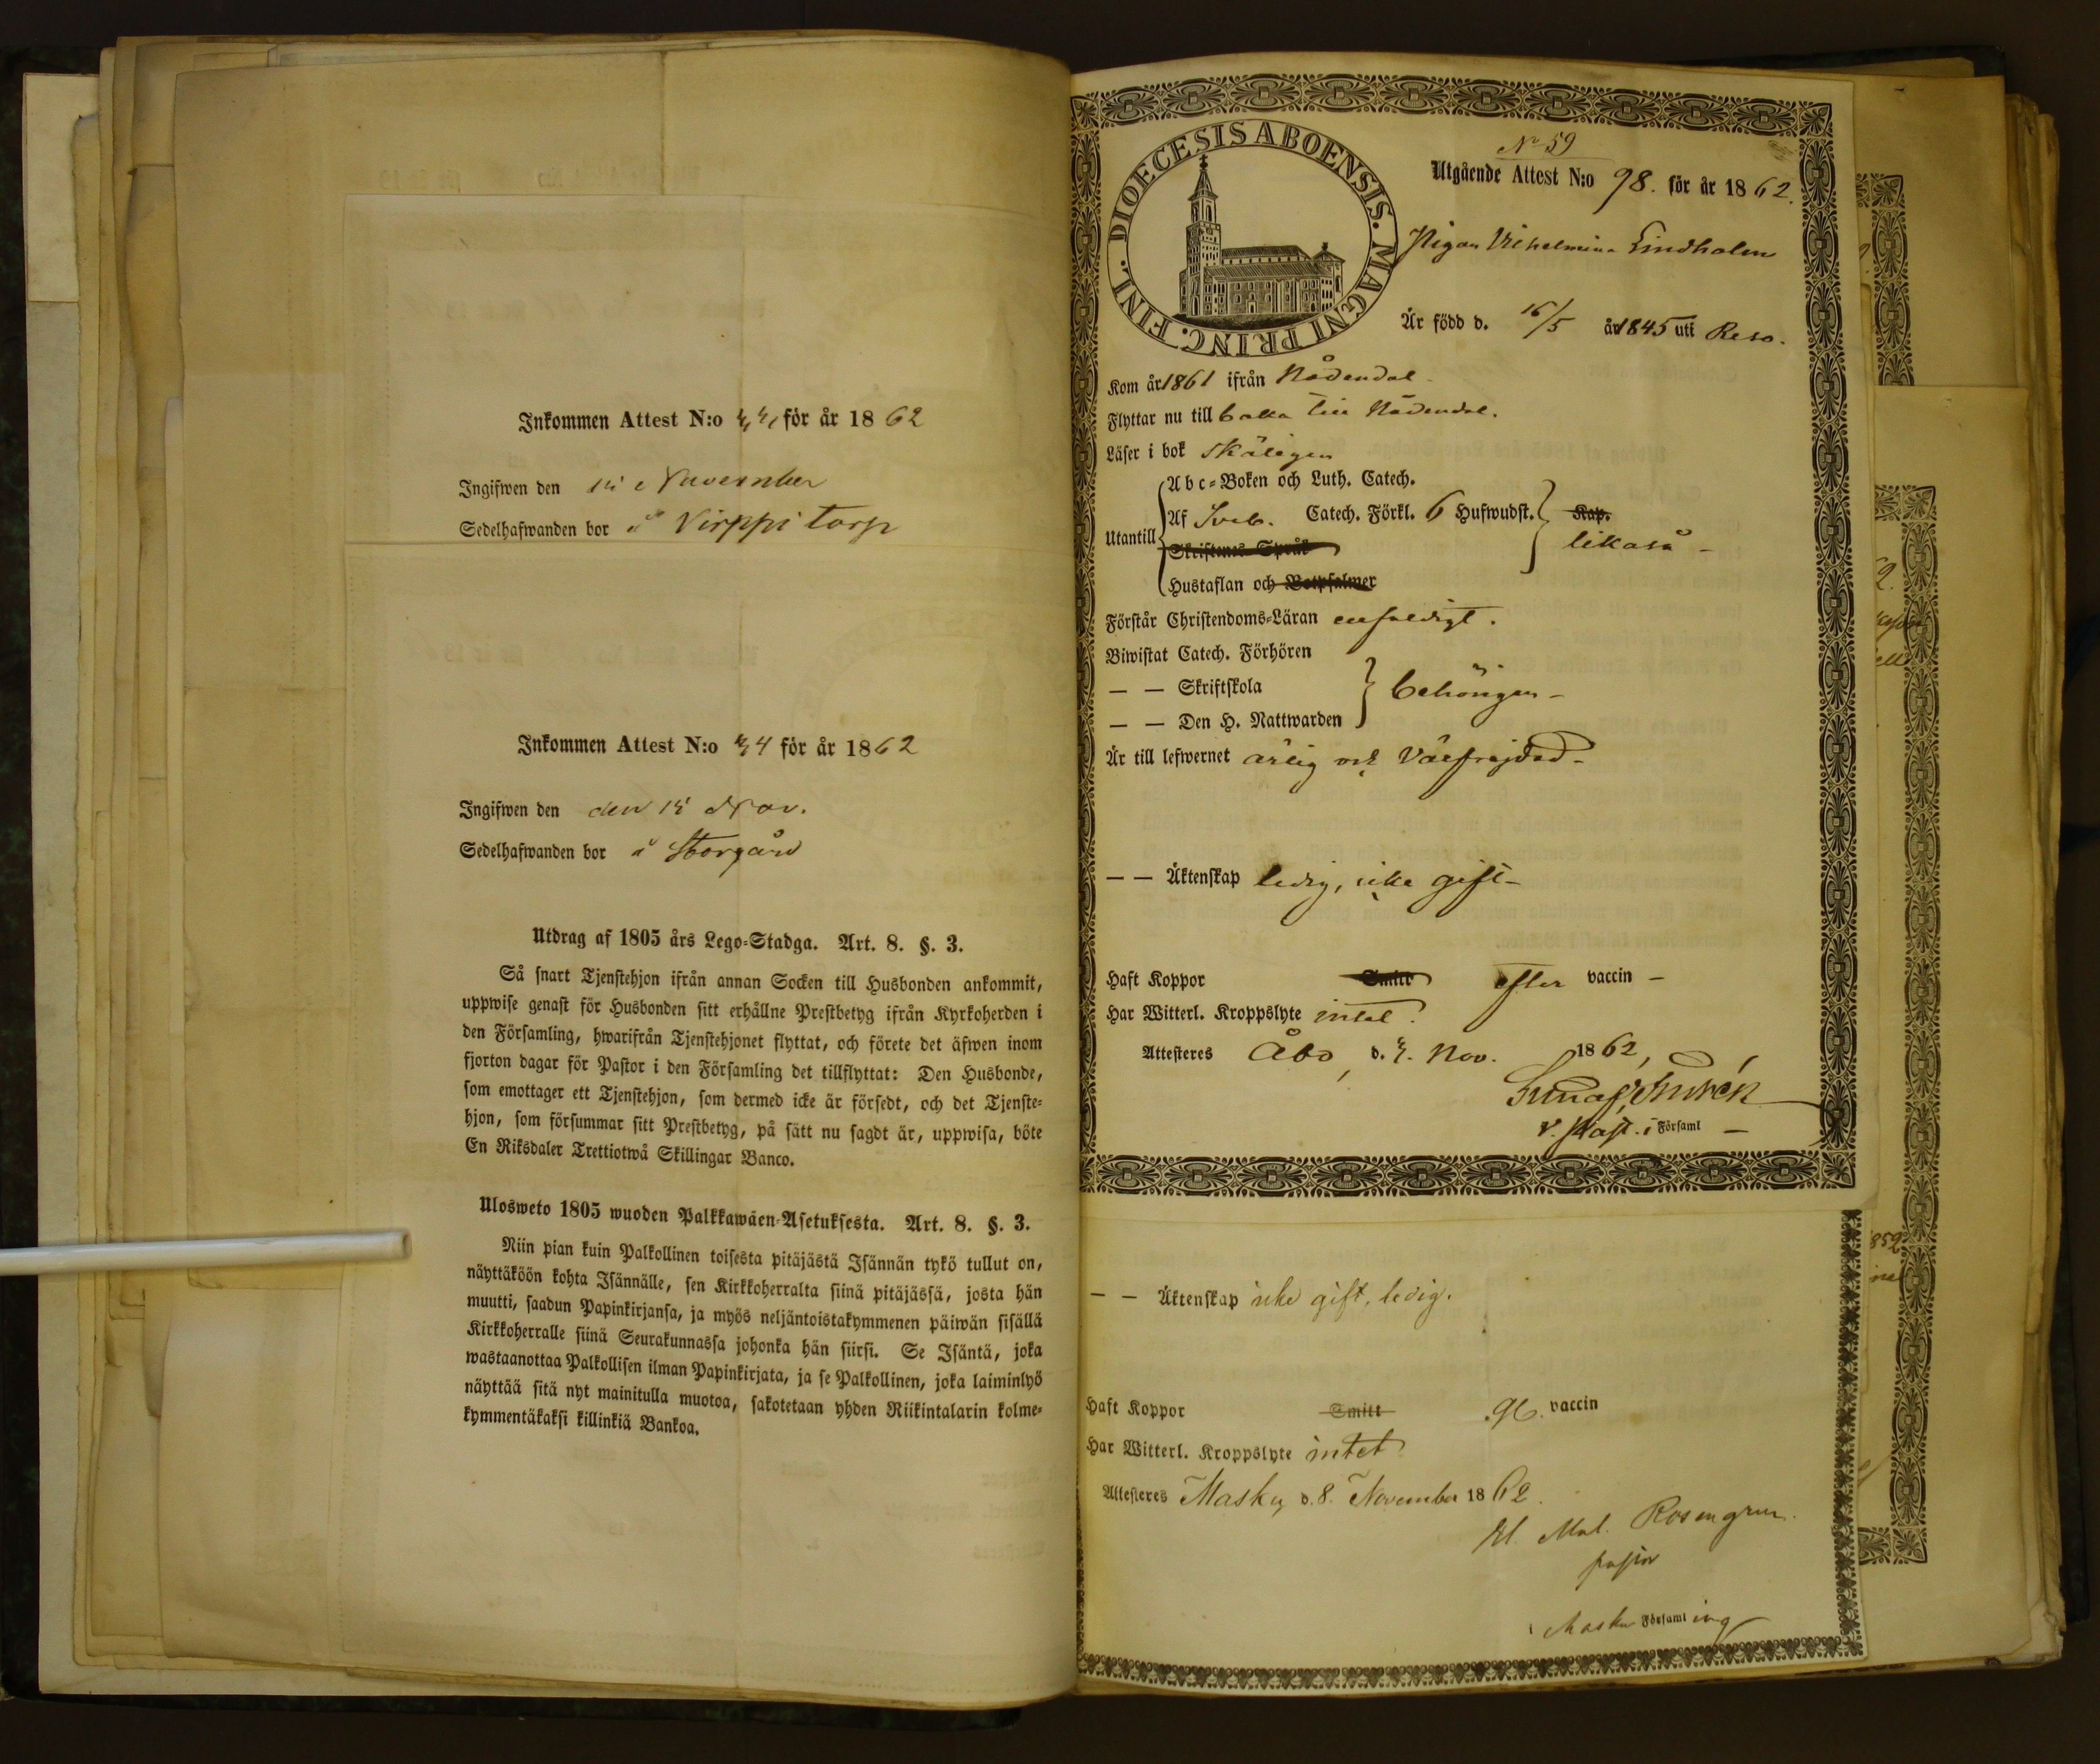 Inkommen Attest N:o för år 1862
Ingifwen den November
Sedelhafwanden bor å Virppi torp
Inkommen Attest N:o för år 1862
Ingifwen den den Nov.
Sedelhafwanden bor å Storgård
Utdrag af 1805 års Lego-Stadga. Art. 8. §. 3.
Så snart Tjenstehjon ifrån annan Socken till Husbonden ankommit,
uppwise genast för Husbonden sitt erhållne Prestbetyg ifrån Kyrkoherden i
den Församling, hwarifrån Tjenstehjonet flyttat, och förete det äfwen inom
fjorton dagar för Pastor i den Församling det tillflyttat: Den Husbonde,
som emottager ett Tjenstehjon, som dermed icke är försedt, och det Tjenste-
hjon, som försummar sitt Prestbetyg, på sätt nu sagdt är, uppwisa, böte
En Riksdaler Trettiotwå Skillingar Banco.
Ulosweto 1805 wuoden Palkkawäen-Asetuksesta. Art. 8. §. 3.
Niin pian kuin Palkollinen toisesta pitäjästä Isännän tykö tullut on,
näyttäköön kohta Isännälle, sen Kirkkoherralta siinä pitäjässä, josta hän
muutti, saadun Papinkirjansa, ja myös neljäntoistakymmenen päiwän sisällä
Kirkkoherralle siinä Seurakunnassa johonka hän siirsi. Se Isäntä, joka
wastaanottaa Palkollisen ilman Papinkirjata, ja se Palkollinen, joka laiminlyö
näyttää sitä nyt mainitulla muotoa, sakotetaan yhden Riikintalarin kolme-
kymmentäkaksi killinkiä Bankoa.
DIOECESIS ABOENSIS. MAGNI PRINC. FINL.
No 59
Utgående Attest N:o 98. för år 1862.
Pigan Vilhelmina Lindholm
Är född d. 16/5 år 1845 uti Reso.
Kom år 1861 ifrån Nådendal
Flyttar nu till baka till Nådendal.
Läser i bok skäligen
Abc-Boken och Luth. Catech.
Utantill Af Sveb. Catech. Förkl. 6 Hufwudst. Kap.
likaså
Skriftenes Språk
Hustaflan och Botpsalmer
Förstår Christendoms-Läran enfaldigt.
Biwistat Catech. Förhören
— — Skriftskola behörigen
— — Den H. Nattwarden
Är till lefwernet ärlig och Välfrejdad
— — Äktenskap ledig, icke gift
Haft Koppor Smitt efter vaccin
Har Witterl. Kroppslyte intet.
Attesteres Åbo, d. Nov. 1862,
v. Past. i Församl
— — Äktenskap icke gift, ledig.
Haft Koppor Smitt vaccin
Har Witterl. Kroppslyte intet
Attesteres Masku, d. 8. November 1862.
Rosengren.
pastor
i Masku Församling